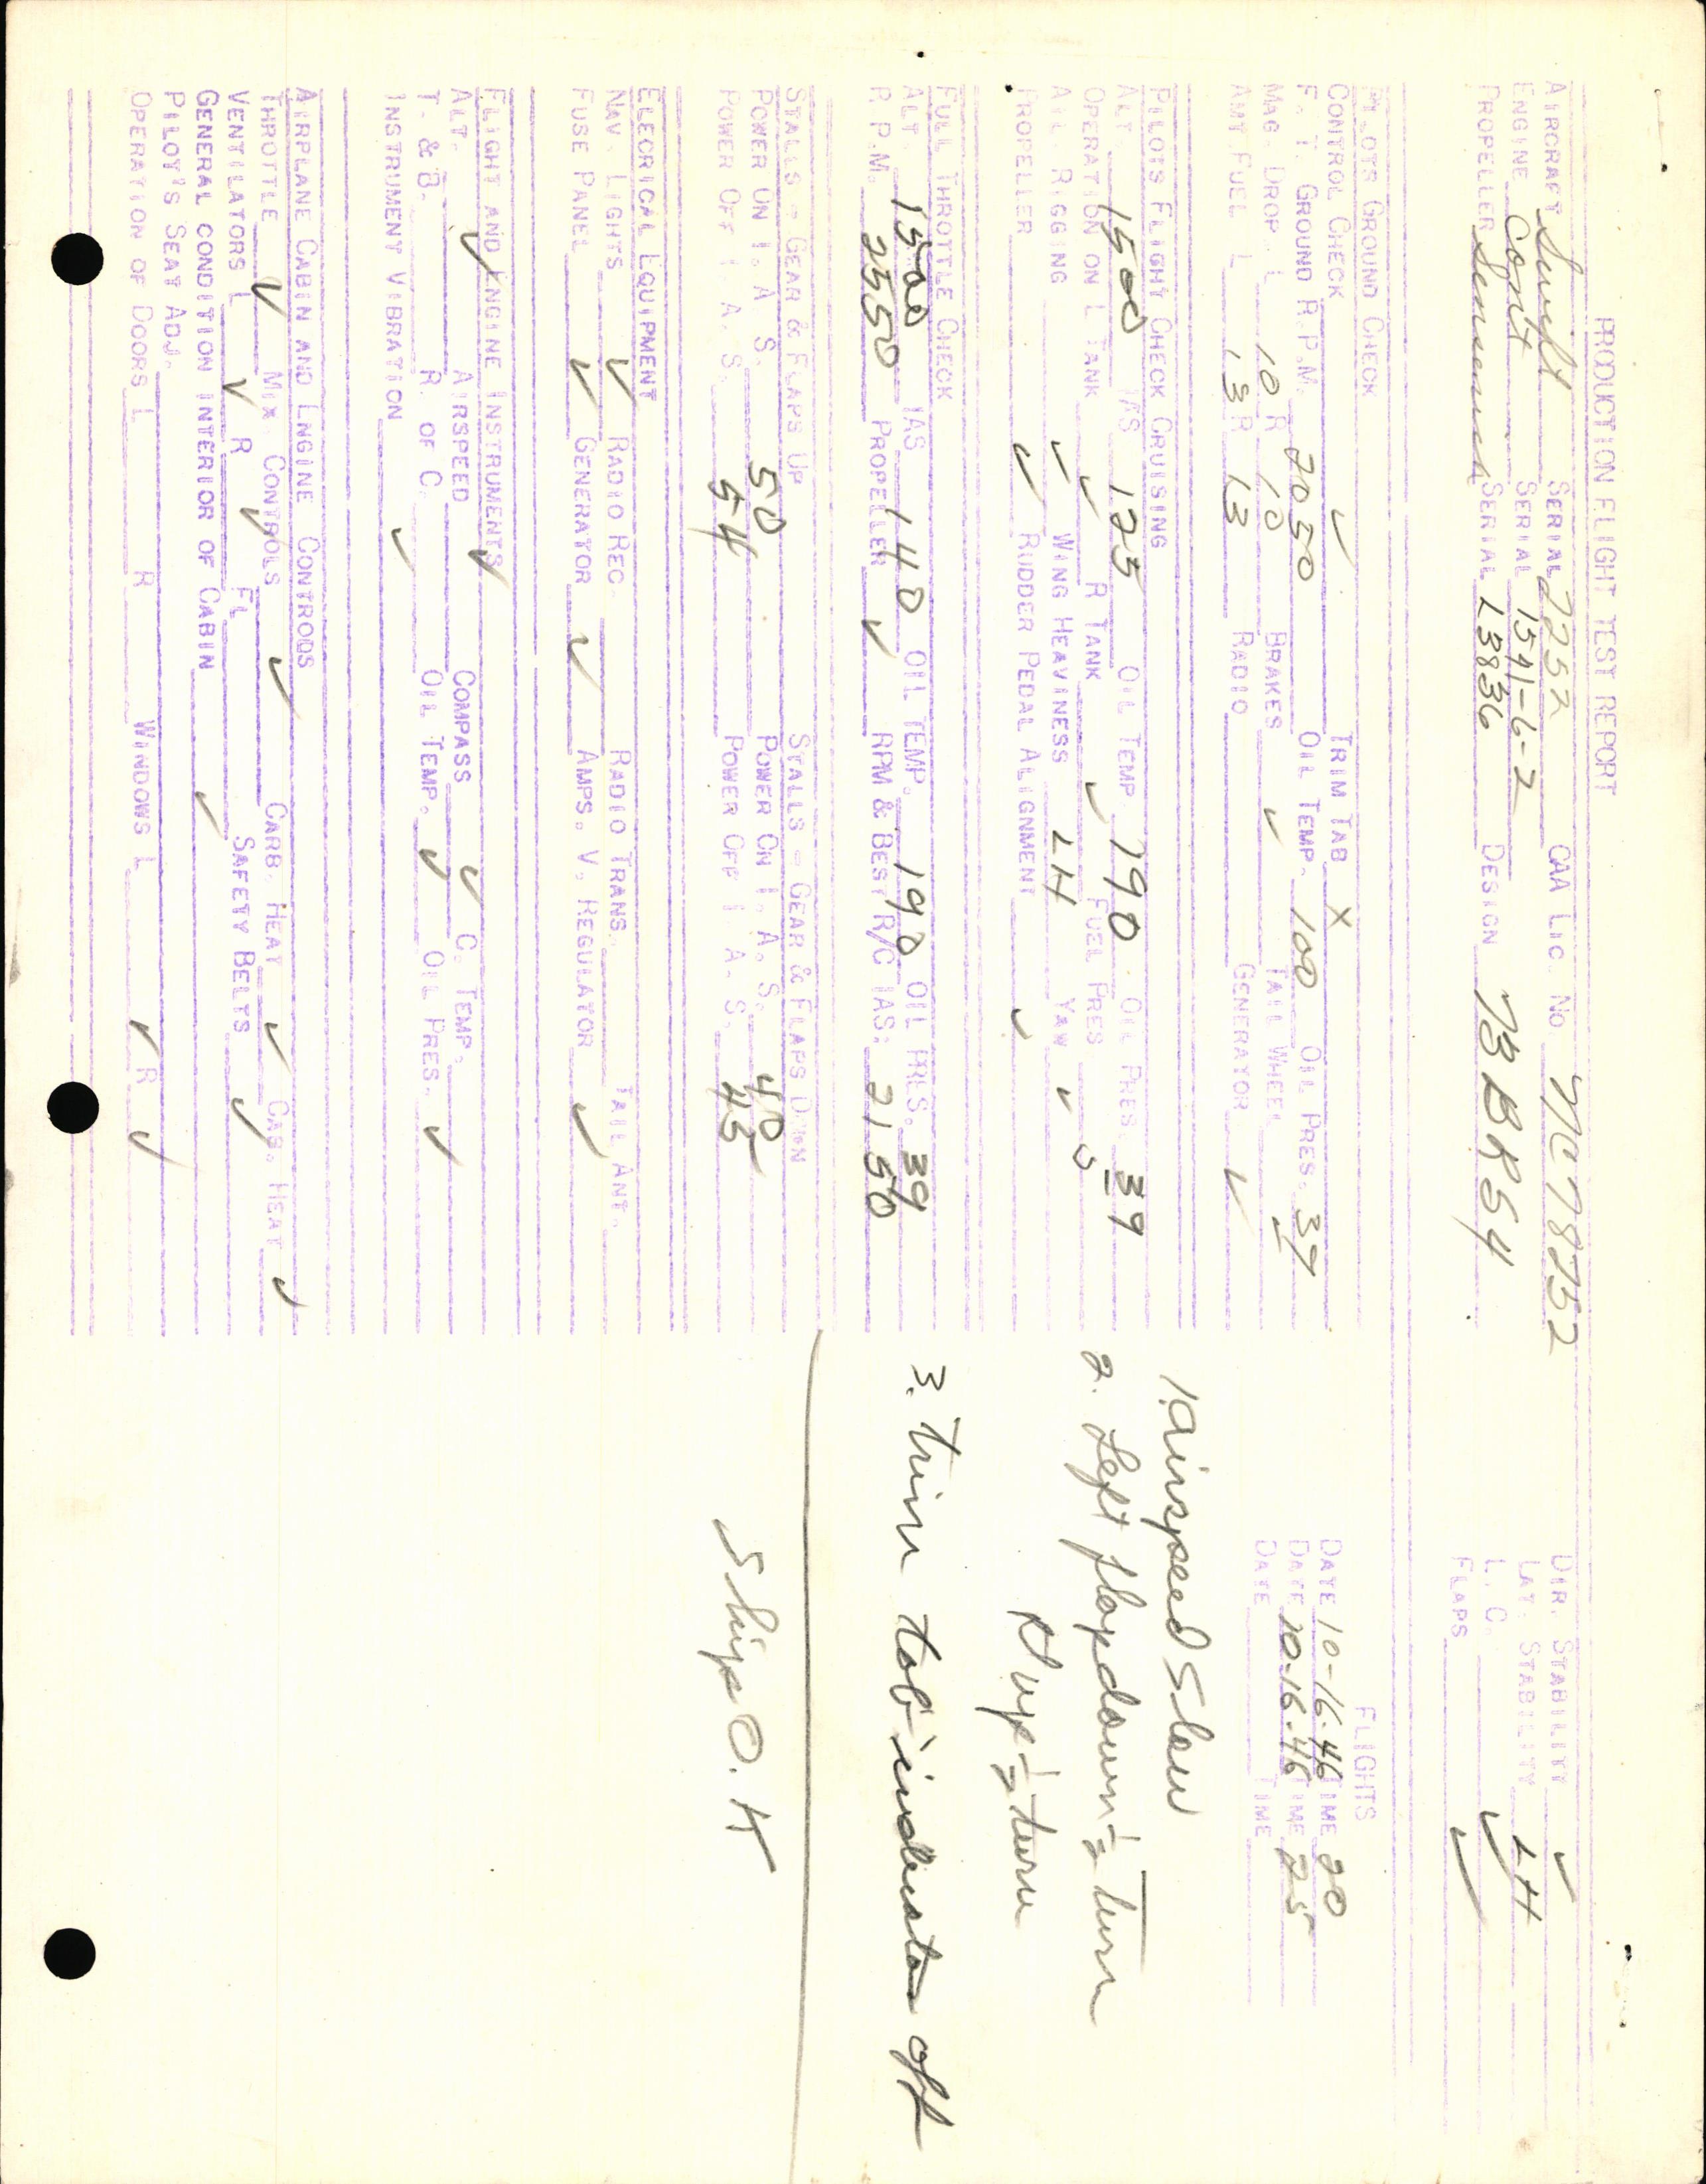 PRODUCTION FLIGHT TEST REPORT
AIRCRAFT Swift SERIAL 2252 CAA LIC. NO NC78252 DIR. STABILITY ✓
ENGINE Cont SERIAL 1541-6-2 DESIGN 73BR54 LAT. STABILITY LH
PROPELLER Sensenich SERIAL L3836 L. C. ✓
FLAPS ✓
PILOTS GROUND CHECK FLIGHTS
CONTROL CHECK ✓ TRIM TAB X DATE 10-16-46 TIME 20
F. T. GROUND R.P.M. 2050 OIL TEMP. 100 OIL PRES. 39 DATE 10-16-46 TIME 25
MAG. DROP L 10 R 10 BRAKES ✓ TAIL WHEEL DATE TIME
AMT FUEL L 13 R 13 RADIO GENERATOR ✓
PILOTS FLIGHT CHECK CRUISING
ALT. 1500 IAS 125 OIL TEMP. 190 OIL PRES. 39
OPERATION ON L TANK ✓ R TANK ✓ FUEL PRES
AIL. RIGGING ✓ WING HEAVINESS LH YAW ✓
PROPELLER ✓ RUDDER PEDAL ALIGNMENT ✓
FULL THROTTLE CHECK
ALT 1500 IAS 140 OIL TEMP. 190 OIL PRES. 39
R.P.M. 2550 PROPELLER ✓ RPM & BEST R/C IAS: 2150
STALLS - GEAR & FLAPS UP STALLS - GEAR & FLAPS DOWN
POWER ON I. A. S. 50 POWER ON I. A. S. 40
POWER OFF I. A. S. 54 POWER OFF I. A. S. 45
ELECRICAL EQUIPMENT
NAV. LIGHTS ✓ RADIO REC. RADIO TRANS. TAIL ANT.
FUSE PANEL ✓ GENERATOR ✓ AMPS. V. REGULATOR ✓
FLIGHT AND ENGINE INSTRUMENTS
ALT. ✓ AIRSPEED ✓ COMPASS ✓ C. TEMP.
T. & B. R. OF C. OIL TEMP. ✓ OIL PRES. ✓
INSTRUMENT VIBRATION ✓
AIRPLANE CABIN AND ENGINE CONTROLS
THROTTLE ✓ MIX CONTROLS ✓ CARB. HEAT ✓ CAB. HEAT ✓
VENTILATORS L ✓ R ✓ FL SAFETY BELTS ✓
GENERAL CONDITION INTERIOR OF CABIN ✓
PILOT'S SEAT ADJ.
OPERATION OF DOORS L R WINDOWS L ✓ R ✓
1. Airspeed Slow
2. Left flap down ½ Turn
R up ½ turn
3. Trim tab indicator off
Ship O.K